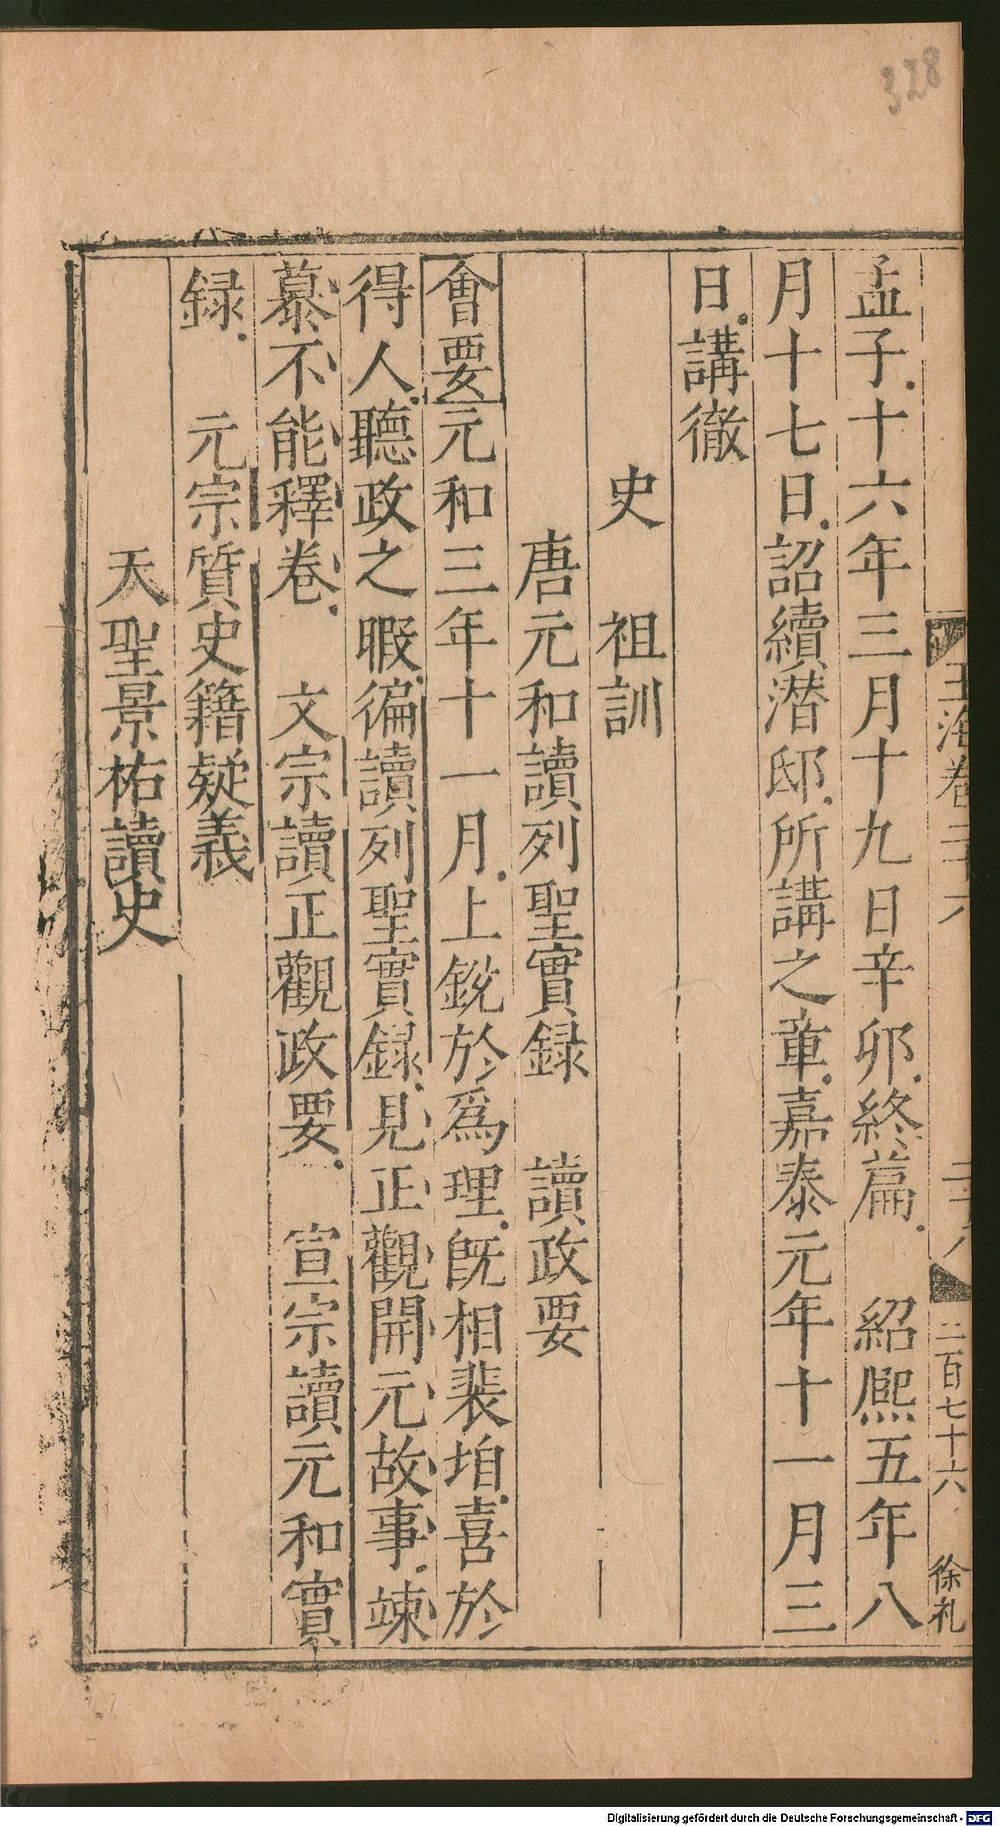 328
玉海卷二十六
二十八
二百七十六
徐礼
孟子十六年三月十九日辛卯終篇 紹熙五年八
月十七日詔續潜邸所講之章嘉泰元年十一月三
日講徹
史 祖訓
唐元和讀列聖實録 讀政要
會要元和三年十一月上銳於爲理旣相裴垍喜於
得人聽政之暇徧讀列聖實録見正觀開元故事竦
慕不能釋卷 文宗讀正觀政要 宣宗讀元和實
録 元宗質史籍疑義
天聖景祐讀史
Digitalisierung gefördert durch die Deutsche Forschungsgemeinschaft - DFG